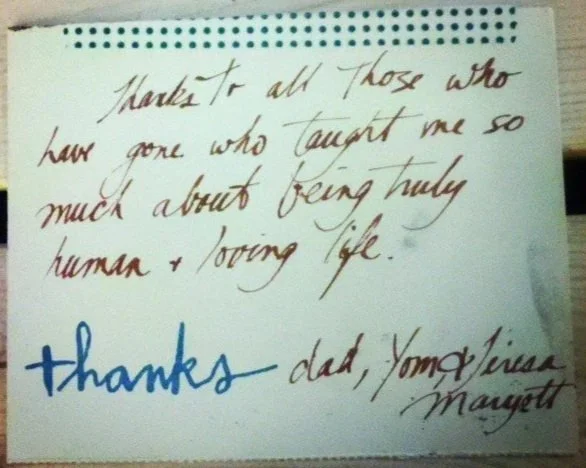 Thanks to all those who
have gone who taught me so
much about being truly
human + loving life.
thanks dad, Yom, & Teresa
Margott